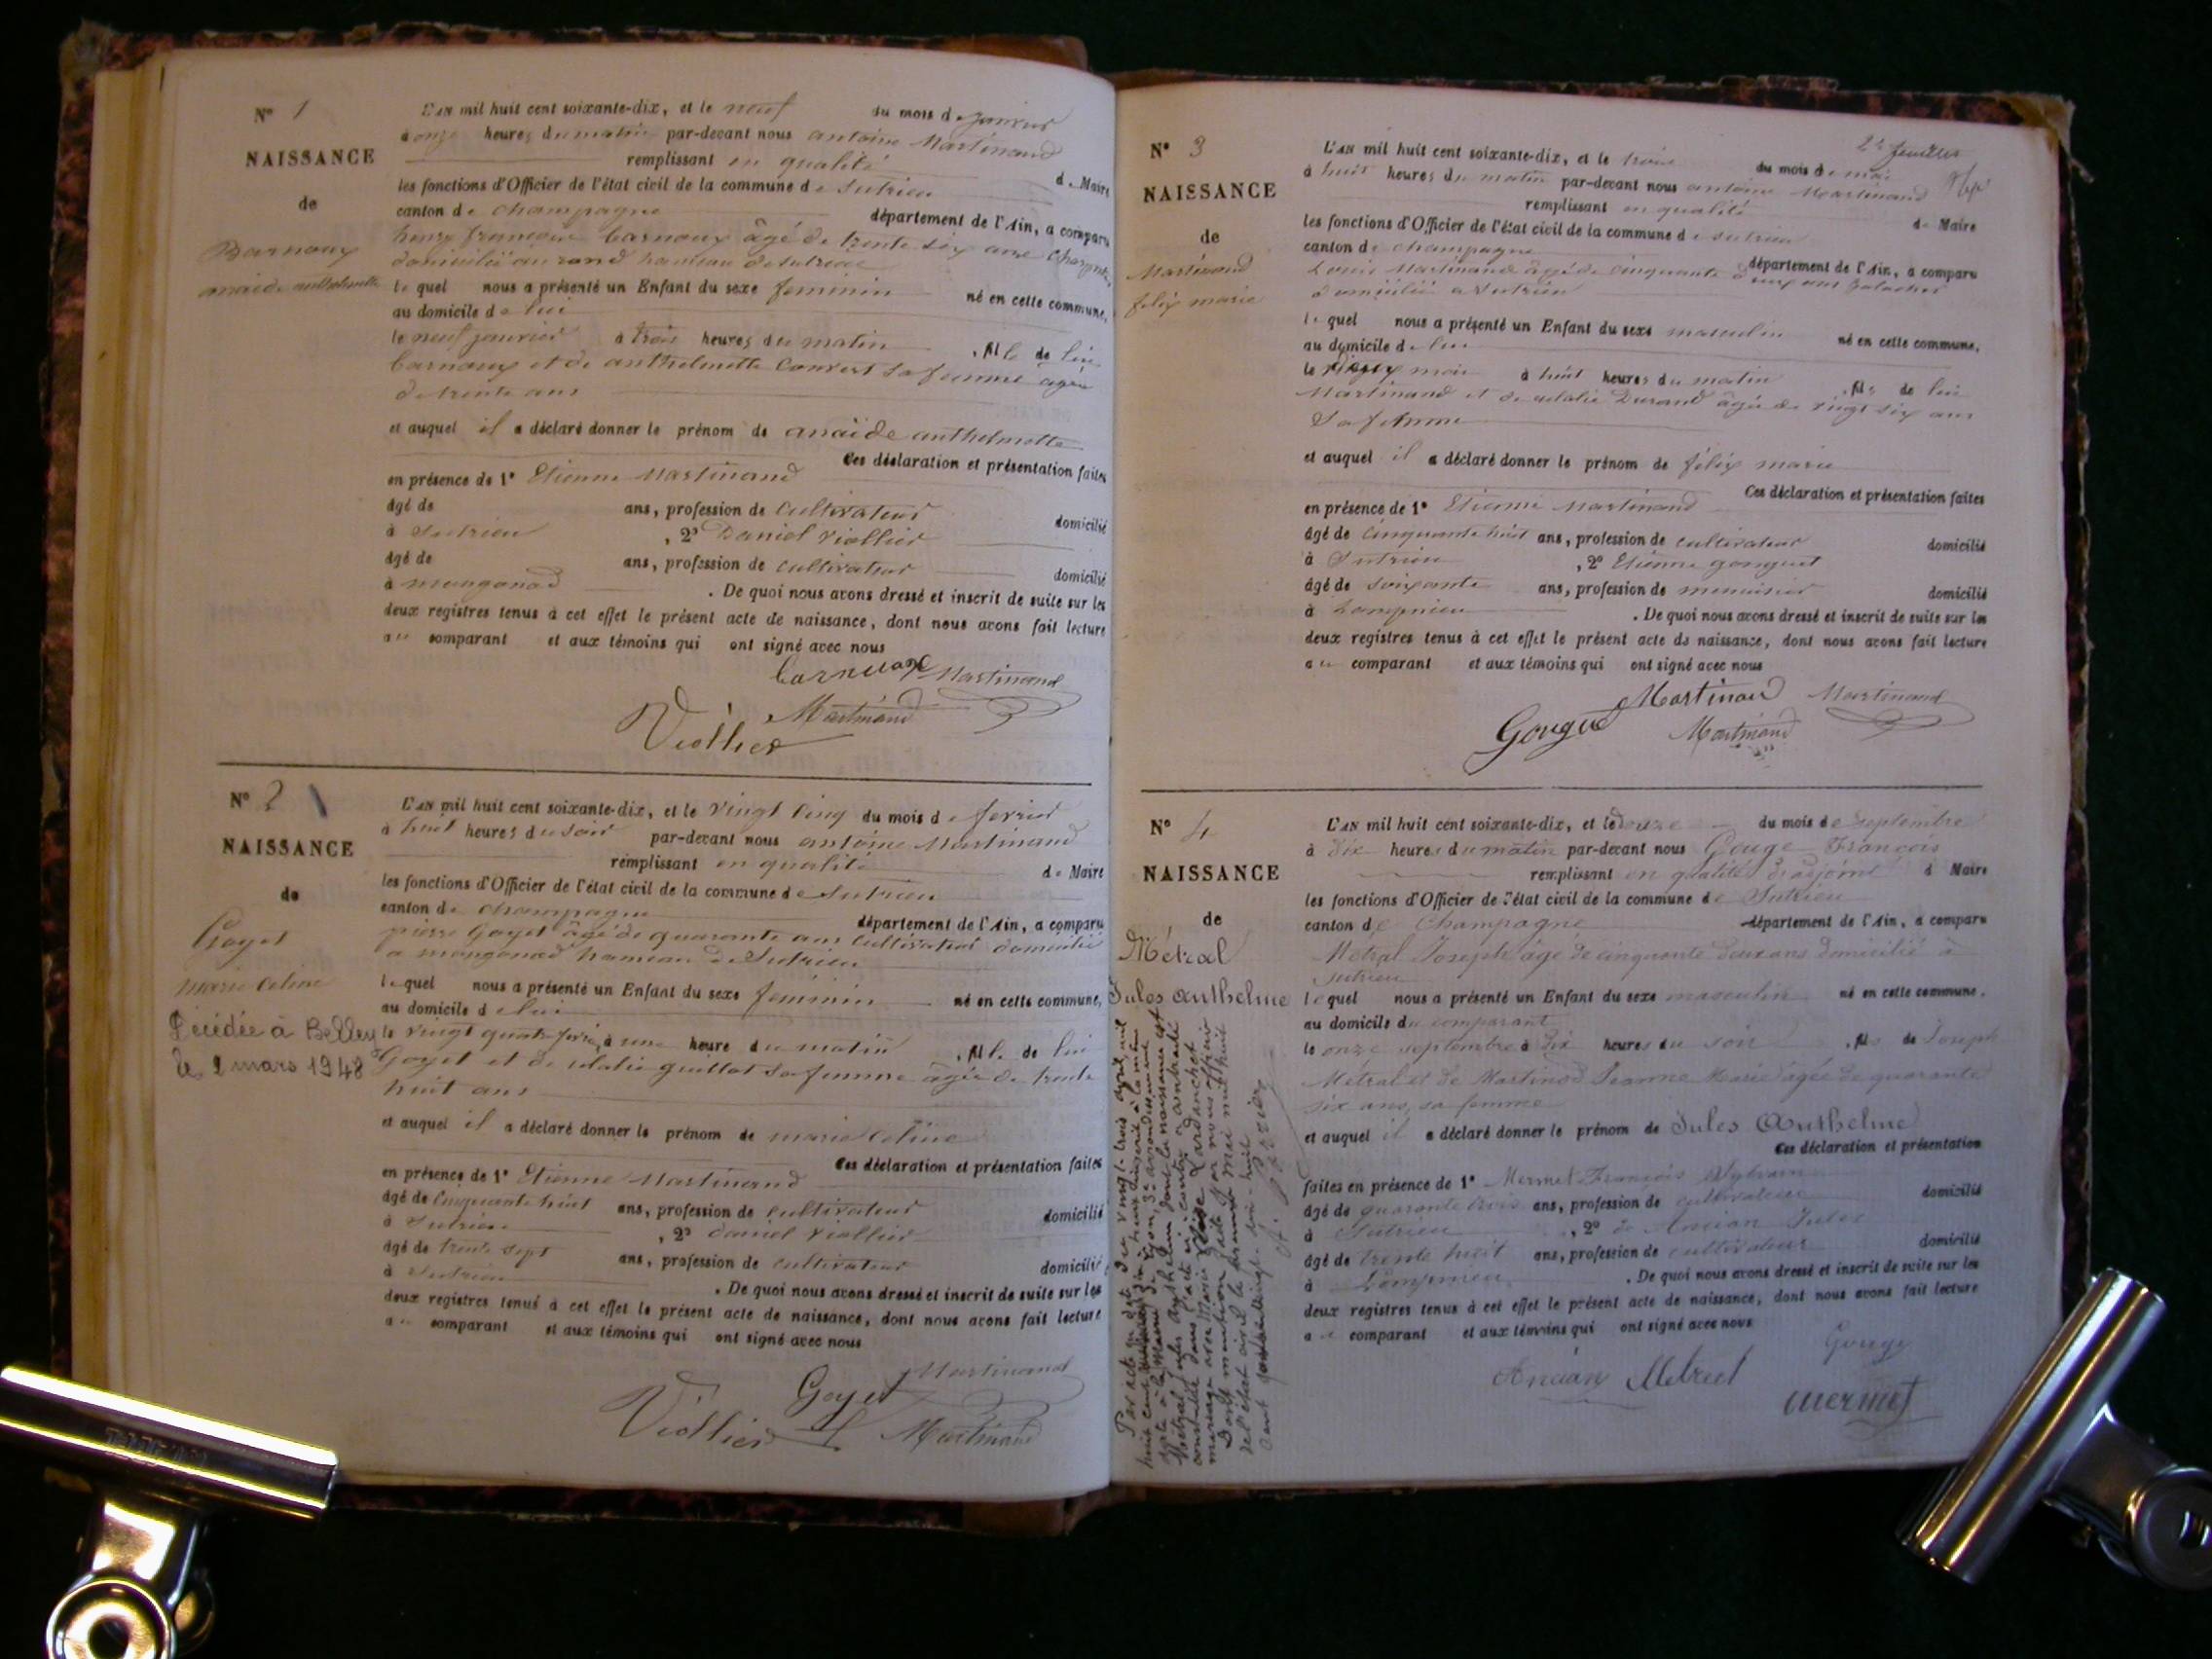 N° 1
NAISSANCE
de
Barnoux
anaide anthelmette
L'AN mil huit cent soixante-dix, et le neuf du mois de janvier
à onze heures du matin par-devant nous antoine Martinand
remplissant en qualité de Maire
les fonctions d'Officier de l'état civil de la commune de Sutrieu
canton de champagne département de l'Ain, a comparu
henry françois Carnoux âgé de trente six ans
domicilié au hameau de Sutrieu
lequel nous a présenté un Enfant du sexe feminin né en cette commune,
au domicile de lui
le neuf janvier à trois heures du matin , fille de lui
Carnoux et de anthelmette Convert sa femme agée
de trente ans
et auquel il a déclaré donner le prénom de anaïde anthelmette
Ces déclaration et présentation faites
en présence de 1° Etienne Martinand
âgé de ans, profession de cultivateur domicilié
à Sutrieu , 2° Daniel Viollier
âgé de ans, profession de cultivateur domicilié
à mongonod . De quoi nous avons dressé et inscrit de suite sur les
deux registres tenus à cet effet le présent acte de naissance, dont nous avons fait lecture
au comparant et aux témoins qui ont signé avec nous
Carnoux Martinand
Viollier Martinand
N° 2
NAISSANCE
de
Goyet
marie Celine
Décédée à Belley
le 2 mars 1948
L'AN mil huit cent soixante-dix, et le vingt cinq du mois de fevrier
à huit heures du soir par-devant nous antoine Martinand
remplissant en qualité de Maire
les fonctions d'Officier de l'état civil de la commune de Sutrieu
canton de champagne département de l'Ain, a comparu
pierre Goyet âgé de quarante ans cultivateur domicilié
a mongonod hameau de Sutrieu
lequel nous a présenté un Enfant du sexe feminin né en cette commune,
au domicile de lui
le vingt quatre à une heure du matin , fille de lui
Goyet et de eulalie guillot sa femme âgée de trente
huit ans
et auquel il a déclaré donner le prénom de marie Celine
Ces déclaration et présentation faites
en présence de 1° Etienne Martinand
âgé de Cinquante huit ans, profession de cultivateur domicilié
à Sutrieu , 2° Daniel Viollier
âgé de trente sept ans, profession de cultivateur domicilié
à Sutrieu . De quoi nous avons dressé et inscrit de suite sur les
deux registres tenus à cet effet le présent acte de naissance, dont nous avons fait lecture
au comparant et aux témoins qui ont signé avec nous
Goyet Martinand
Viollier Martinand
2e feuillet
N° 3
NAISSANCE
de
Martinand
felix marie
L'AN mil huit cent soixante-dix, et le trois du mois de mai
à huit heures du matin par-devant nous antoine Martinand
remplissant en qualité de Maire
les fonctions d'Officier de l'état civil de la commune de Sutrieu
canton de champagne département de l'Ain, a comparu
Louis Martinand âgé de cinquante ans
domicilié a Sutrieu
lequel nous a présenté un Enfant du sexe masculin né en cette commune,
au domicile de lui
le mai à huit heures du matin , fils de lui
Martinand et de eulalie Durand âgée de vingt six ans
Sa femme
et auquel il a déclaré donner le prénom de félix marie
Ces déclaration et présentation faites
en présence de 1° Etienne Martinand
âgé de cinquante huit ans, profession de cultivateur domicilié
à Sutrieu , 2° Etienne gouget
âgé de soixante ans, profession de menuisier domicilié
à Lompnieu . De quoi nous avons dressé et inscrit de suite sur les
deux registres tenus à cet effet le présent acte de naissance, dont nous avons fait lecture
au comparant et aux témoins qui ont signé avec nous
Martinand Martinand
Gouget Martinand
N° 4
NAISSANCE
de
Métral
Jules Anthelme
Par acte en date du vingt-trois avril mil
huit cent
date à la mairie de Lyon, 3e arrondissement
Métral Jules Anthelme dont la naissance est
constatée dans l'acte ci-contre a contracté
mariage avec Marie Lardanchet
Dont mention faite par nous officier
de l'état civil le premier Mai mil huit
cent
L'AN mil huit cent soixante-dix, et le douze du mois de Septembre
à dix heures du matin par-devant nous Gouge François
remplissant en qualité d'adjoint d Maire
les fonctions d'Officier de l'état civil de la commune de Sutrieu
canton de Champagne département de l'Ain, a comparu
Métral Joseph âgé de cinquante deux ans domicilié à
Sutrieu
lequel nous a présenté un Enfant du sexe masculin né en cette commune,
au domicile du comparant
le onze septembre à dix heures du soir , fils de Joseph
Métral et de Martinod Jeanne Marie âgée de quarante
six ans, sa femme
et auquel il a déclaré donner le prénom de Jules Anthelme
Ces déclaration et présentation
faites en présence de 1° Mermet François Sylvain
âgé de quarante trois ans, profession de cultivateur domicilié
à Sutrieu , 2° de Ancian Jules
âgé de trente huit ans, profession de cultivateur domicilié
à Lompnieu . De quoi nous avons dressé et inscrit de suite sur les
deux registres tenus à cet effet le présent acte de naissance, dont nous avons fait lecture
au comparant et aux témoins qui ont signé avec nous
Gouge
Ancian Métral
Mermet